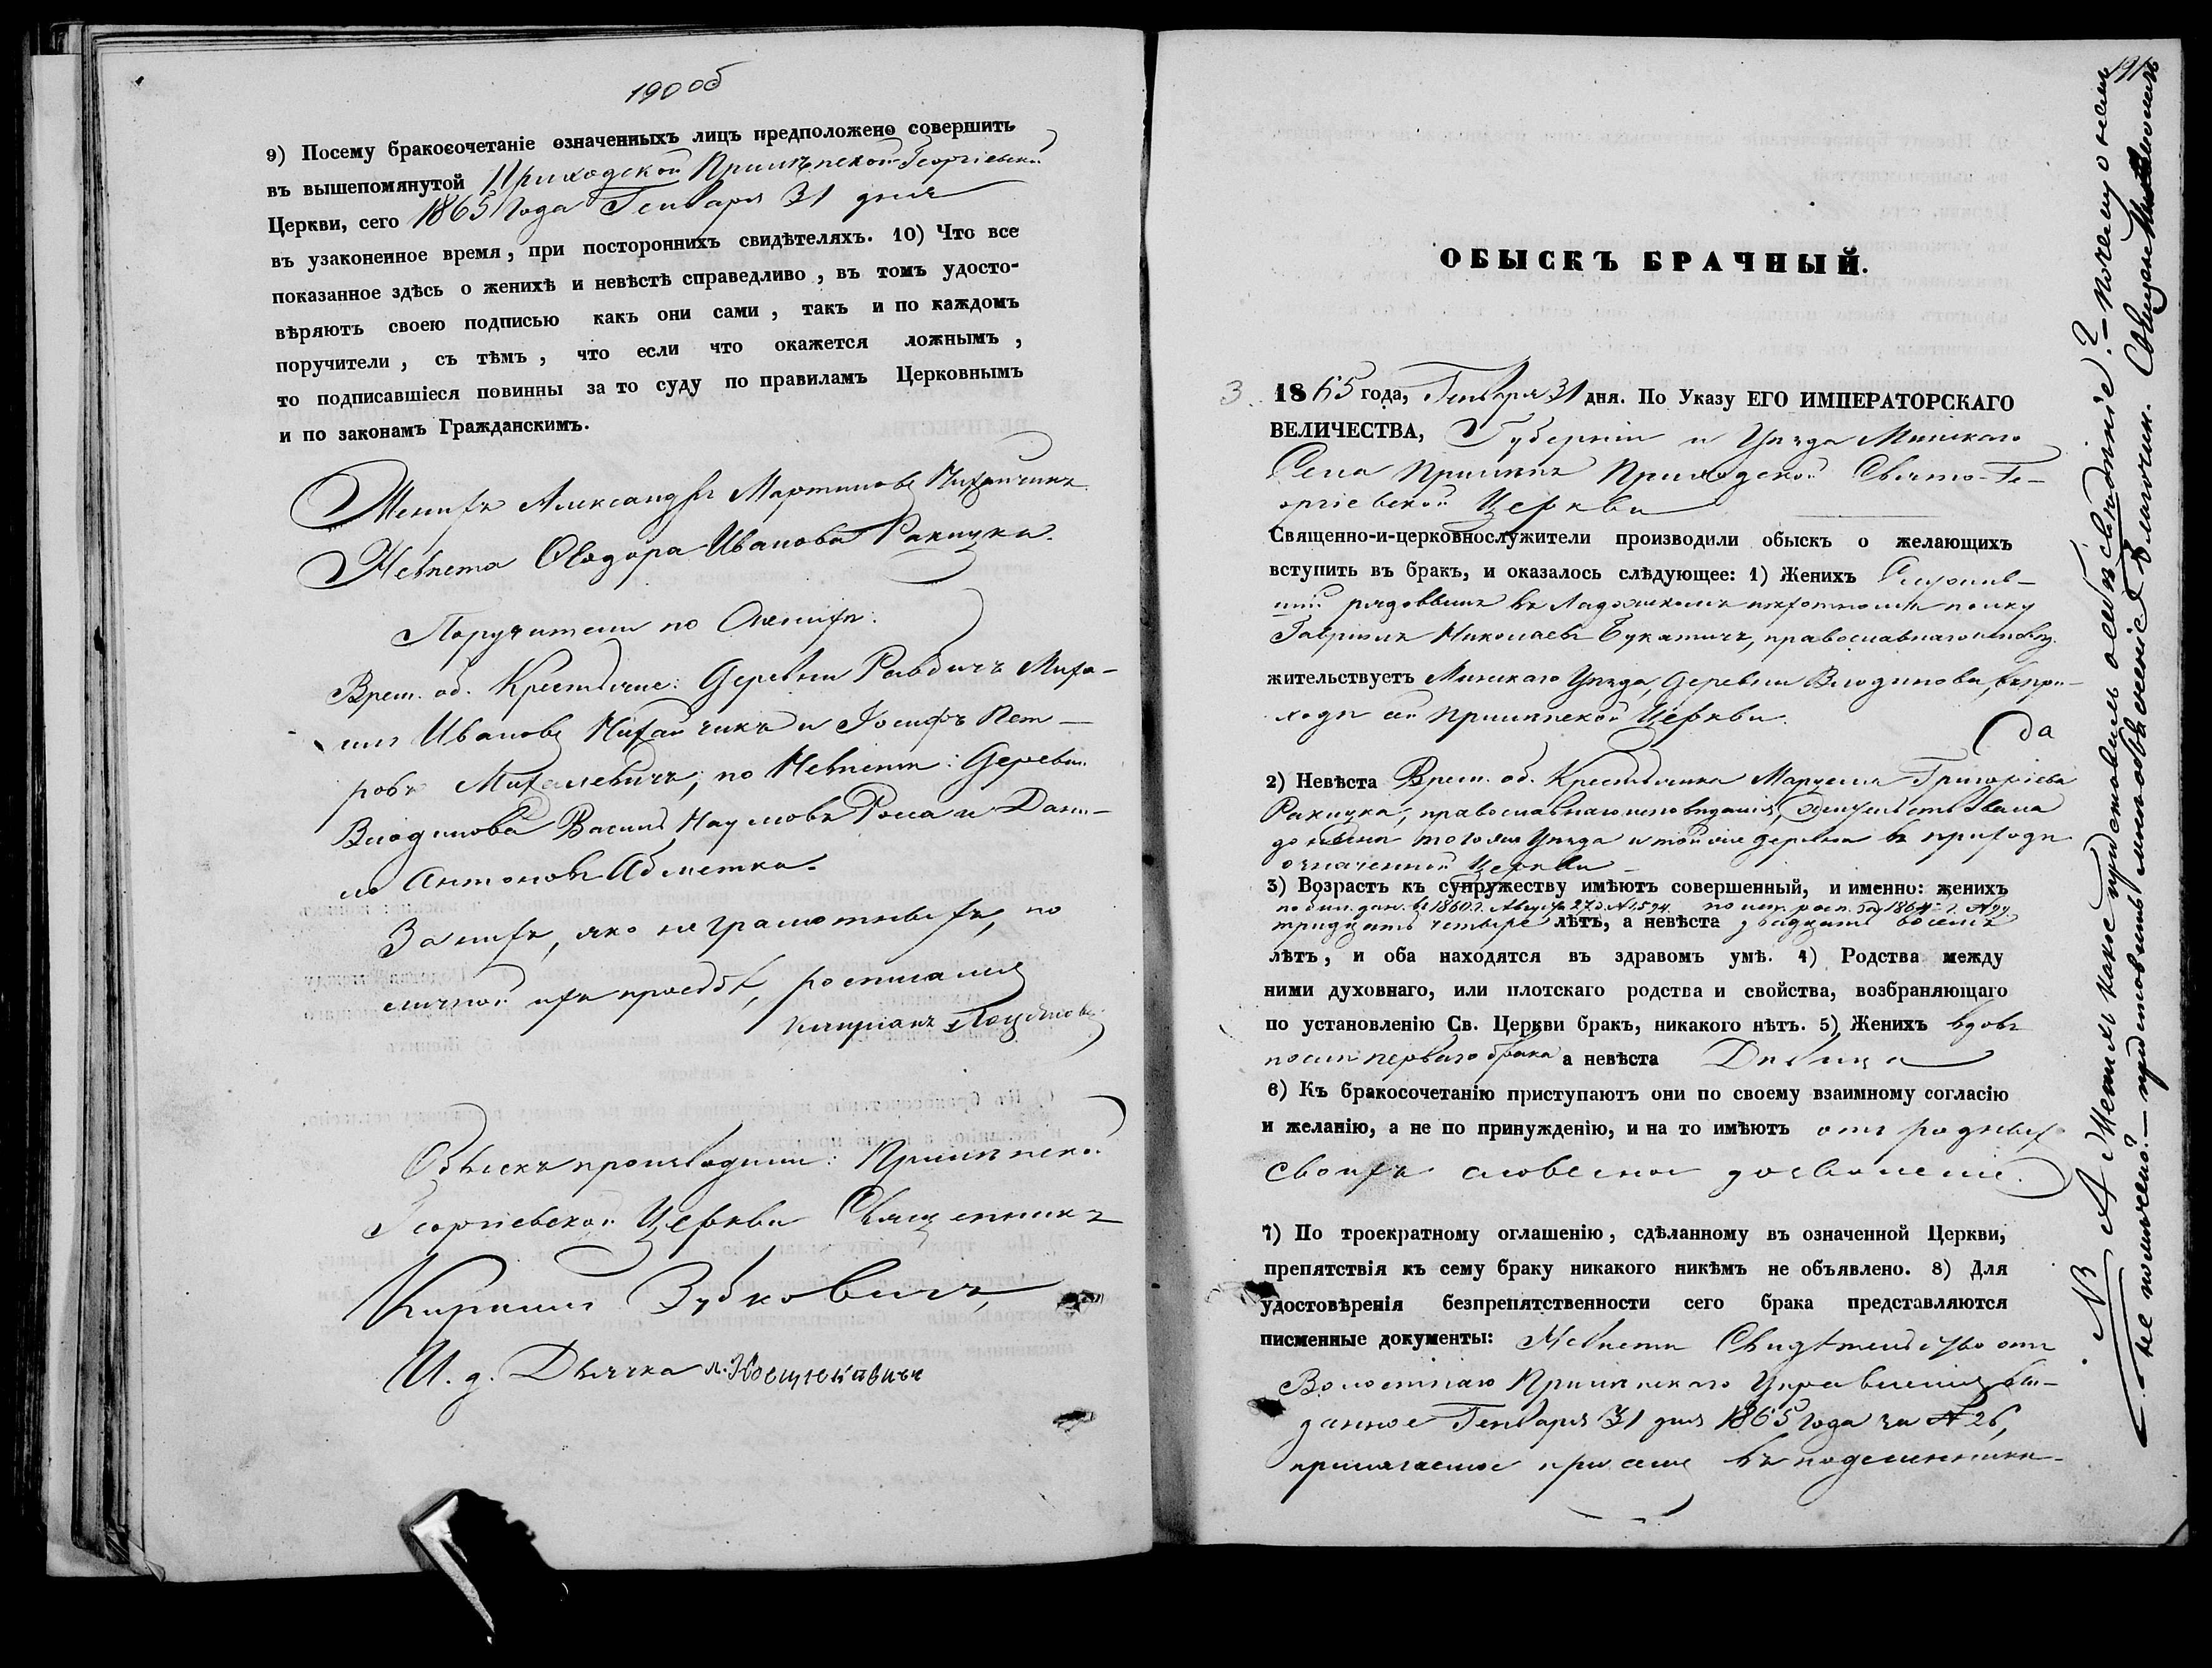 190 об
9) Посему бракосочетаніе означенныхъ лицъ предположено совершить
въ вышепомянутой Приходской Прилѣпской Георгіевской
Церкви, сего 1865 года Генваря 31 дня
въ узаконенное время, при постороннихъ свидѣтеляхъ. 10) Что все
показанное здѣсь о женихѣ и невѣстѣ справедливо, въ томъ удосто-
вѣряютъ своею подписью какъ они сами, такъ и по каждомъ
поручители, съ тѣмъ, что если что окажется ложнымъ,
то подписавшіеся повинны за то суду по правиламъ Церковнымъ
и по законамъ Гражданскимъ.
Женихъ Александръ Мартиновъ
Невѣста Ѳеодора Иванова Ракицка.
Поручители по Женихѣ:
Врем. об. Крестьяне: Деревни Миха-
илъ Ивановъ и Іосифъ Пет-
ровъ Михалевичъ; по Невѣстѣ: Деревни
Василь Наумовъ и Дани-
ло Антоновъ
За нихъ, яко неграмотныхъ, по
личной ихъ просьбѣ, росписался
Обыскъ производили: Прилѣпской
Георгіевской Церкви Священникъ
Кириллъ Зубковичъ,
И. д. Дьячка
191
ОБЫСКЪ БРАЧНЫЙ.
3. 1865 года, Генваря 31 дня. По Указу ЕГО ИМПЕРАТОРСКАГО
ВЕЛИЧЕСТВА, Губерніи и Уѣзда Минскаго
Села Прилѣпъ Приходской Свято-Ге-
оргіевской Церкви
Священно-и-церковнослужители производили обыскъ о желающихъ
вступить въ бракъ, и оказалось слѣдующее: 1) Женихъ
рядовымъ въ Ладожскомъ пехотномъ полку
Гавріилъ Николаевъ Букатичъ, православнаго исповѣд.
жительствуетъ Минскаго Уѣзда, Деревни въ при-
ходѣ ей Прилѣпской Церкви.
2) Невѣста Врем. об. Крестьянка Григоріева
Ракицка, православнаго исповѣданія, жительствовала
до селѣ того же Уѣзда и той же деревни въ приходѣ
означенной Церкви
3) Возрастъ къ супружеству имѣютъ совершенный, и именно: женихъ
по бил. дан. въ 1860 г. Августа 27 д. № 1594. по исп. росп. за 1864 г. № 99
тридцать четыре лѣтъ, а невѣста двадцать восемь
лѣтъ, и оба находятся въ здравомъ умѣ. 4) Родства между
ними духовнаго, или плотскаго родства и свойства, возбраняющаго
по установленію Св. Церкви бракъ, никакого нѣтъ. 5) Женихъ вдовъ
послѣ перваго брака а невѣста Дѣвица
6) Къ бракосочетанію приступаютъ они по своему взаимному согласію
и желанію, а не по принужденію, и на то имѣютъ отъ родныхъ
своихъ словесное дозволеніе.
7) По троекратному оглашенію, сдѣланному въ означенной Церкви,
препятствія къ сему браку никакого никѣмъ не объявлено. 8) Для
удостовѣренія безпрепятственности сего брака представляются
писменные документы: Невѣсты Свидѣтельство отъ
Волостнаго Прилѣпскаго Управленія вы-
данное Генваря 31 дня 1865 года за № 26,
прилагаемое при семъ въ подлинникѣ.
NB А Женихъ какое представилъ о себѣ свѣденіе? – почему о немъ
не помѣчено? – представить мнѣ объясненіе. Благочин. Священ.